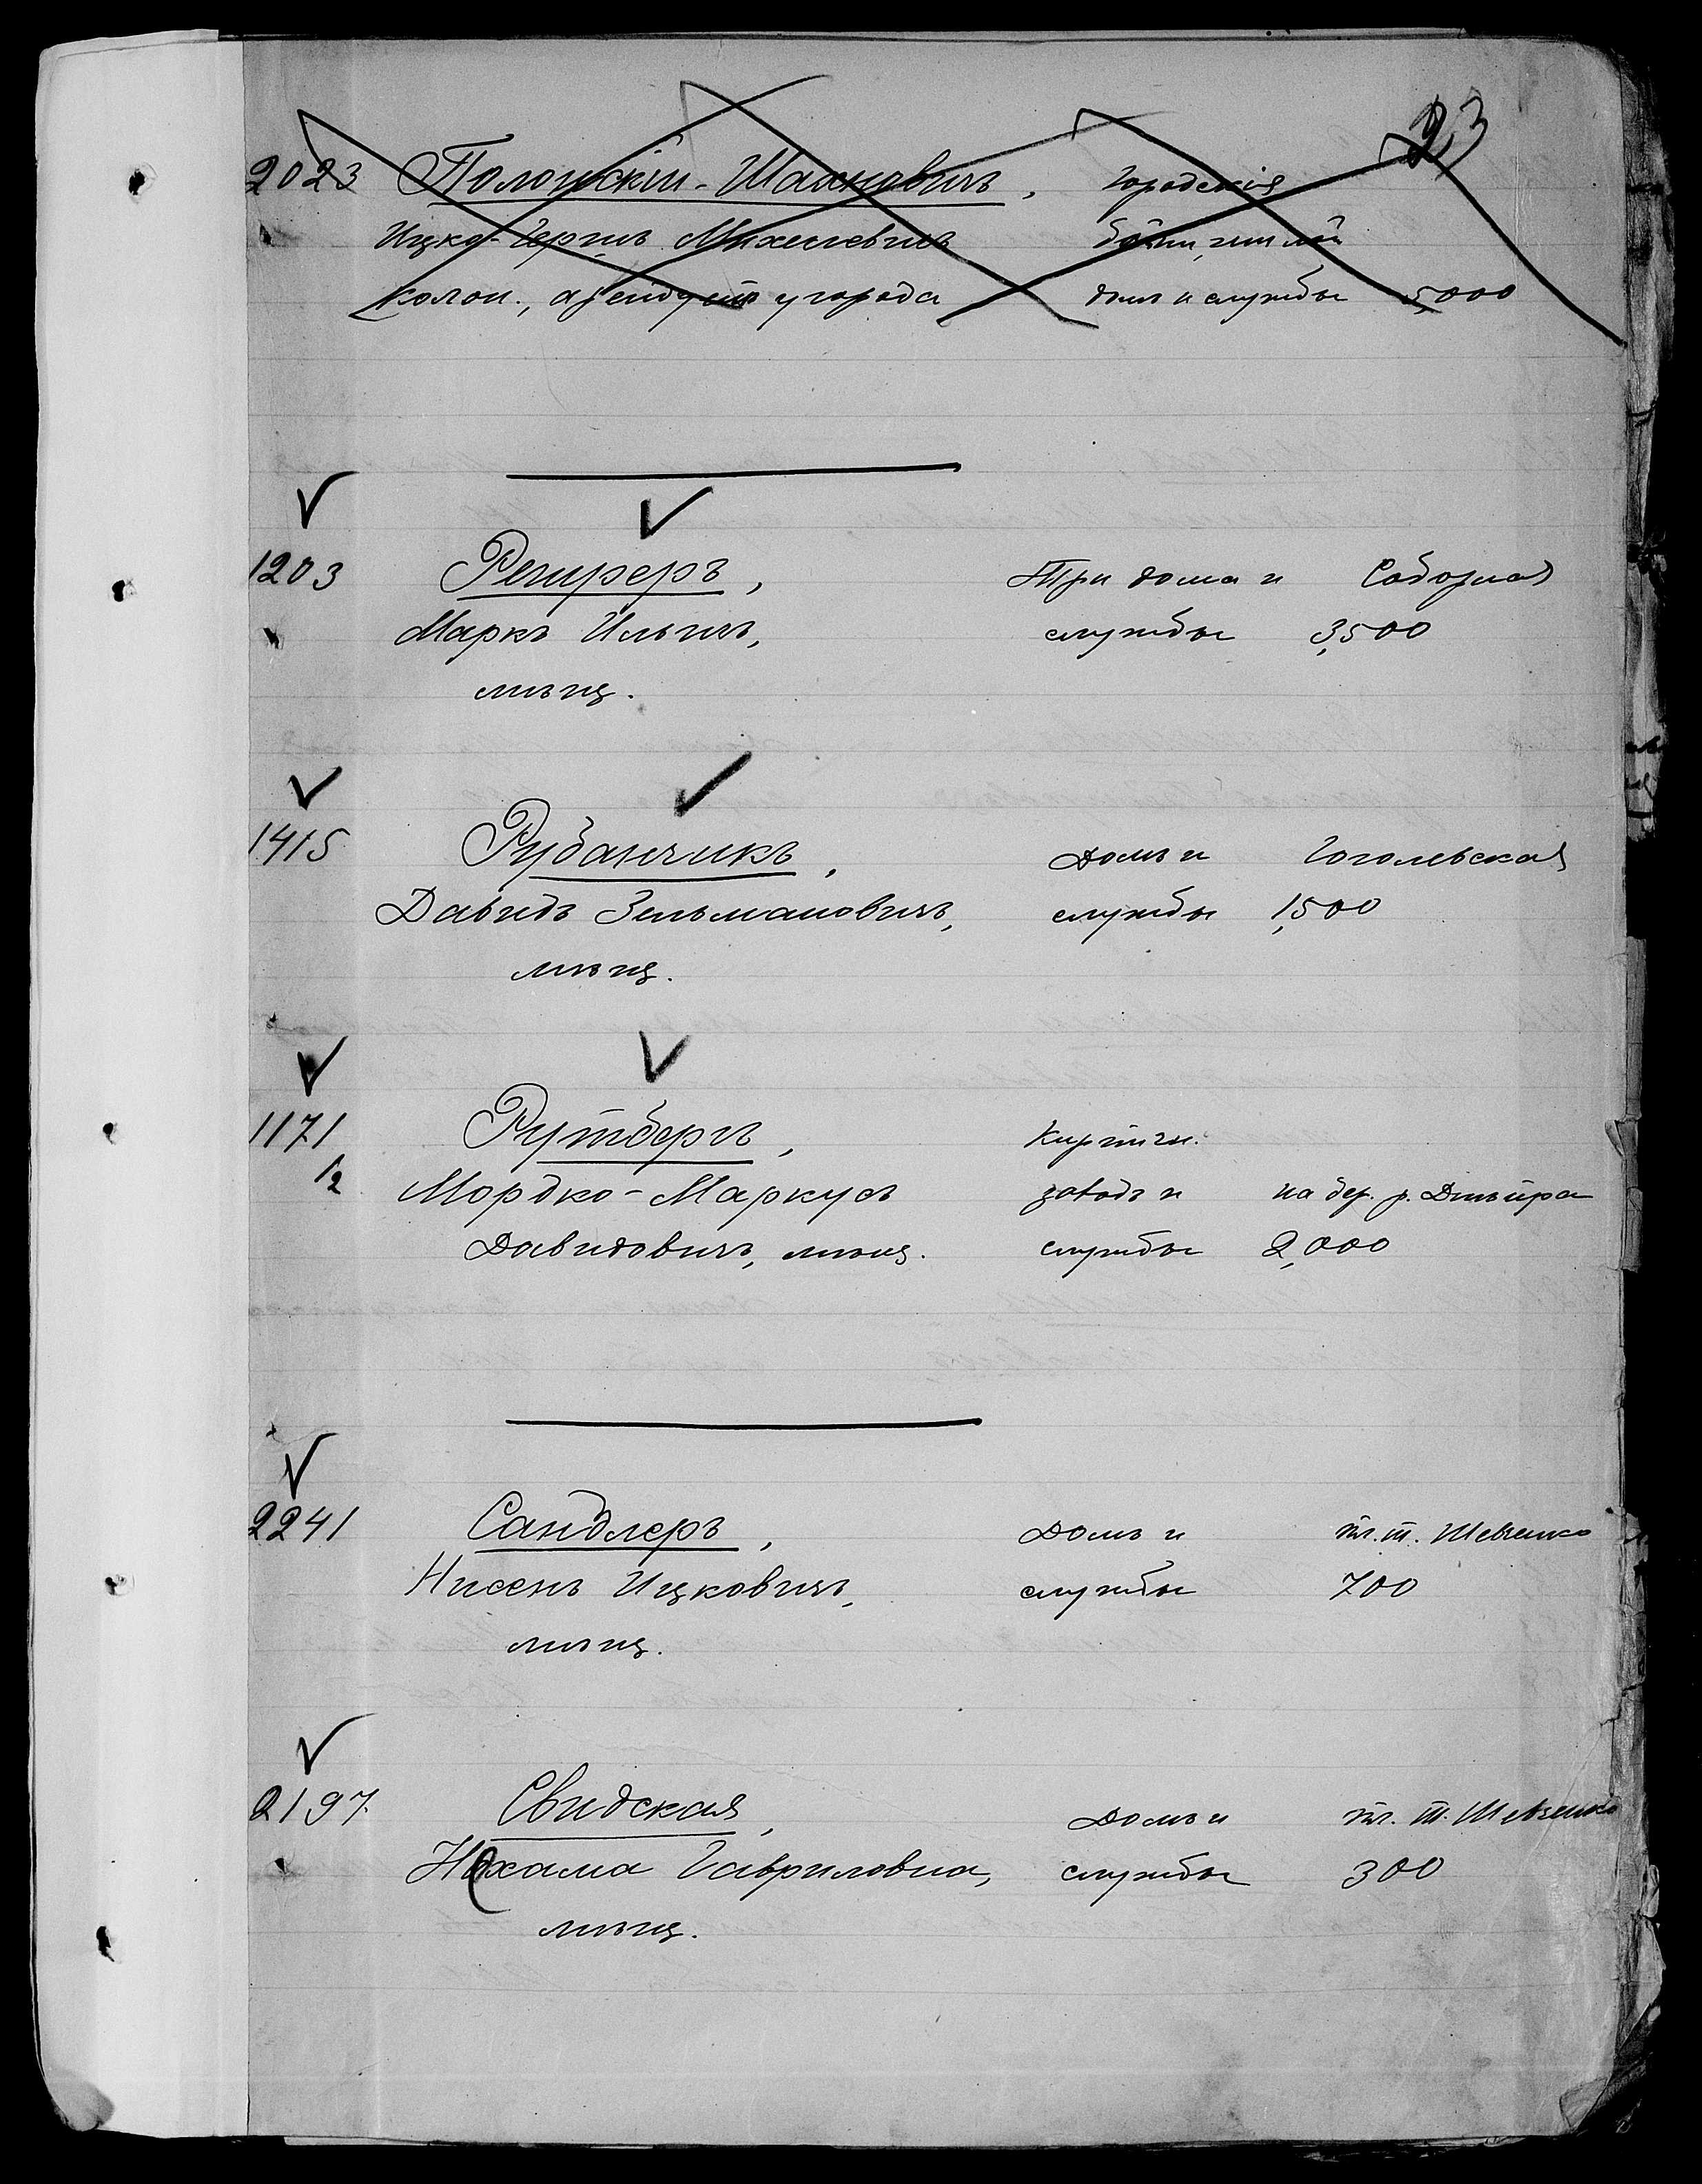 23
2023 Полонскій-Шахновичъ, Городскія
Ицко-Герцъ Михелевичъ бани, жилой
колон., арендуетъ у города домъ и службы 5,000
1203 Региреръ, Три дома и Соборная
Маркъ Ильичъ, службы 3,500
мѣщ.
1415 Рубанчикъ, Домъ и Гоголевская
Давидъ Зельмановичъ, службы 1,500
мѣщ.
1171 Рутбергъ, Кирпичн.
1/2 Мордко-Маркусъ заводъ и на бер. р. Днѣпра
Давидовичъ, мѣщ. службы 2,000
2241 Сандлеръ, Домъ и пл. Т. Шевченко
Нисенъ Ицковичъ, службы 700
мѣщ.
2197 Свидская, Домъ и пл. Т. Шевченко
Нехама Гавриловна, службы 300
мѣщ.